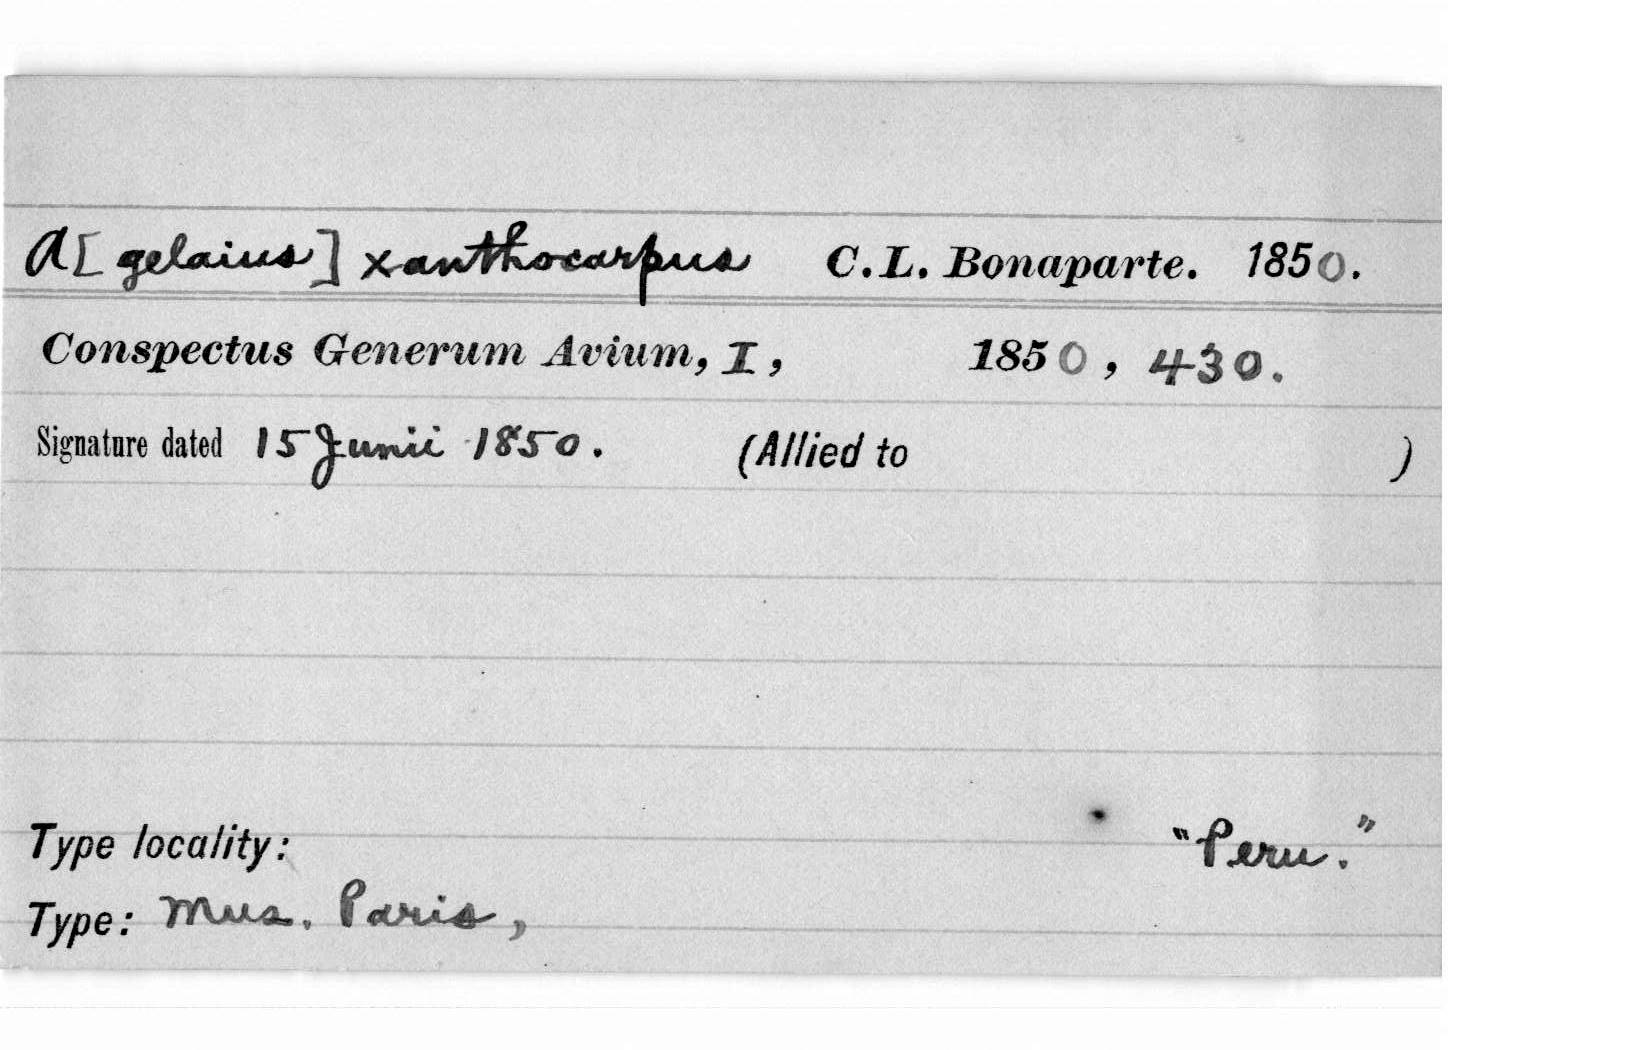 A[gelaius] xanthocarpus C. L. Bonaparte. 1850.
Conspectus Generum Avium, I, 1850, 430.
Signature dated 15 Junii 1850. (Allied to )
Type locality: "Peru."
Type: Mus. Paris,